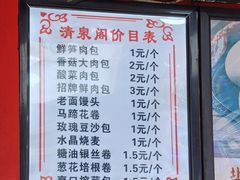 清泉阁价目表
鲜笋肉包 1元/个
香菇大肉包 2元/个
酸菜肉包 2元/个
招牌鲜肉包 3元/个
老面馒头 1元/个
马蹄花卷 1元/个
玫瑰豆沙包 1元/个
水晶烧麦 1元/个
糖油银丝卷 1.5元/个
葱花培根卷 1.5元/个